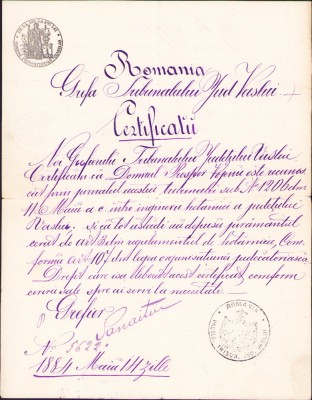 Romania
Grefa Tribunalului Jud Vaslui
Certificatŭ
Noi Grefierulŭ Tribunalului Judeţului Vaslui
Certificăm că Domnul Prosper este recunos
cut prin jurnalul acestui tribunalŭ sub No 1206 din
11 Maiŭ a. c. între inginerii hotarnici a judeţului
Vaslui, şi că tot astădi au depusŭ jurământul
cerut de art 3 din regulamentul de hotărnicie, Con-
formŭ art 107 din legea organisaţiunii judecătoreasca
Drept care sa eliberat acest certificat, conform
cererei sale spre ai servi la necesitate.
Grefier
No 5622
1884 Maiŭ 14 zille
ROMANIA